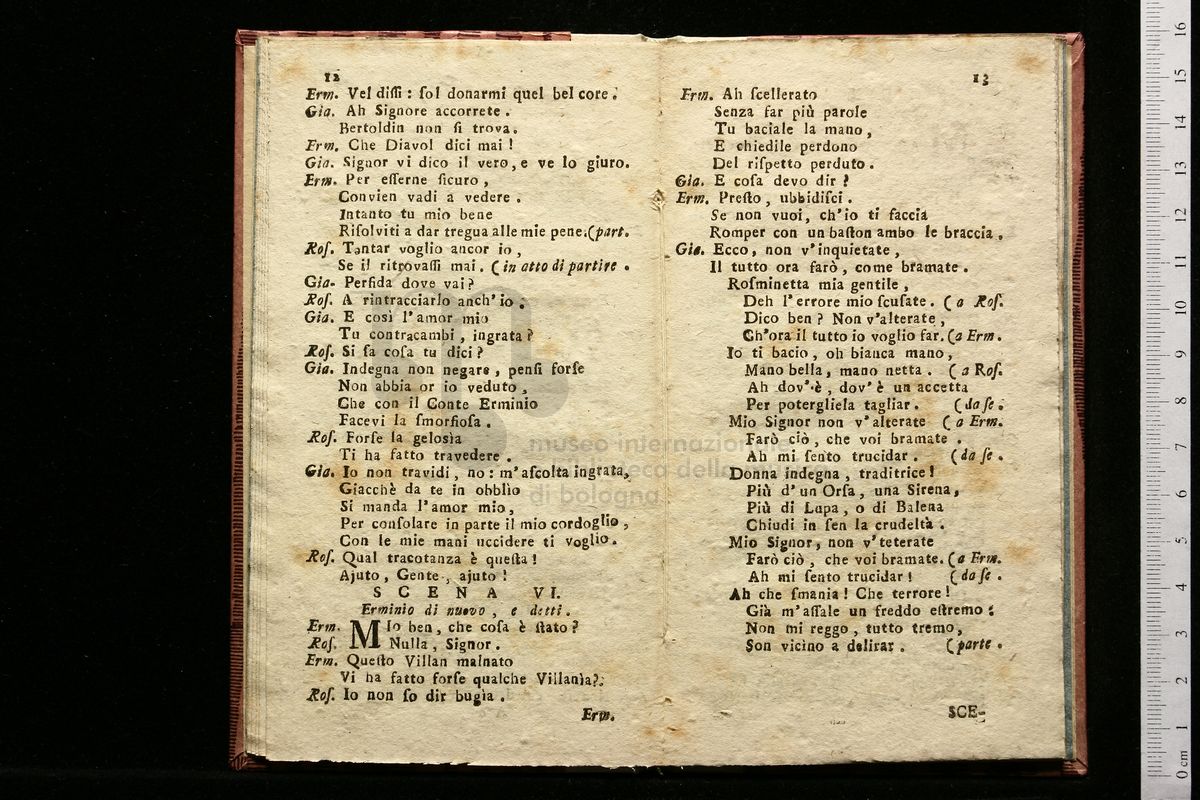 12
Erm. Vel diſſi : ſol donarmi quel bel core.
Gia. Ah Signore accorrete.
Bertoldin non ſi trova.
Erm. Che Diavol dici mai !
Gia. Signor vi dico il vero, e ve lo giuro.
Erm. Per eſſerne ſicuro,
Convien vadi a vedere.
Intanto tu mio bene
Riſolviti a dar tregua alle mie pene.(part.
Roſ. Tantar voglio ancor io,
Se il ritrovaſſi mai. (in atto di partire.
Gia- Perfida dove vai?
Roſ. A rintracciarlo anch' io :
Gia. E così l'amor mio
Tu contracambi, ingrata?
Roſ. Si ſa coſa tu dici?
Gia. Indegna non negare, penſi forſe
Non abbia or io veduto,
Che con il Conte Erminio
Facevi la ſmorfioſa.
Roſ. Forſe la gelosìa
Ti ha fatto travedere.
Gia. Io non travidi, no: m'aſcolta ingrata,
Giacchè da te in obblìo
Si manda l'amor mio,
Per conſolare in parte il mio cordoglio,
Con le mie mani uccidere ti voglio.
Roſ. Qual tracotanza è queſta!
Ajuto, Gente, ajuto!
SCENA VI.
Erminio di nuovo, e detti.
Erm. MIo ben, che coſa è ſtato?
Roſ. Nulla, Signor.
Erm. Queſto Villan malnato
Vi ha fatto forſe qualche Villanìa?
Roſ. Io non ſo dir bugìa.
Erm.
13
Erm. Ah ſcellerato
Senza far più parole
Tu baciale la mano,
E chiedile perdono
Del riſpetto perduto.
Gia. E coſa devo dir?
Erm. Preſto, ubbidiſci.
Se non vuoi, ch'io ti faccia
Romper con un baſton ambo le braccia.
Gia. Ecco, non v'inquietate,
Il tutto ora farò, come bramate.
Roſminetta mia gentile,
Deh l'errore mio ſcuſate. (a Roſ.
Dico ben? Non v'alterate,
Ch'ora il tutto io voglio far. (a Erm.
Io ti bacio, oh bianca mano,
Mano bella, mano netta. (a Roſ.
Ah dov'è, dov'è un accetta
Per potergliela tagliar. (da ſe.
Mio Signor non v'alterate (a Erm.
Farò ciò, che voi bramate.
Ah mi ſento trucidar. (da ſe.
Donna indegna, traditrice!
Più d'un Orſa, una Sirena,
Più di Lupa, o di Balena
Chiudi in ſen la crudeltà.
Mio Signor, non v'teterate
Farò ciò, che voi bramate. (a Erm.
Ah mi ſento trucidar! (da ſe.
Ah che ſmania! Che terrore!
Già m'aſſale un freddo eſtremo:
Non mi reggo, tutto tremo,
Son vicino a delirar. (parte.
SCE-
museo internazionale
di bologna
0 cm 1 2 3 4 5 6 7 8 9 10 11 12 13 14 15 16